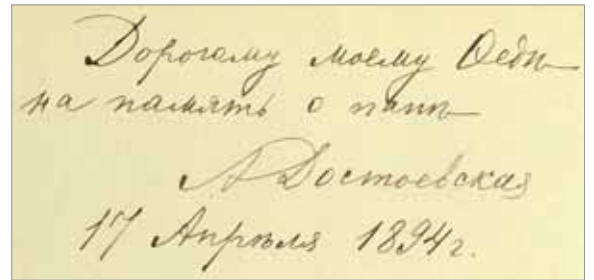 Дорогому моему Ѳедѣ
на память о папѣ
А Достоевская
17 Апрѣля 1894 г.